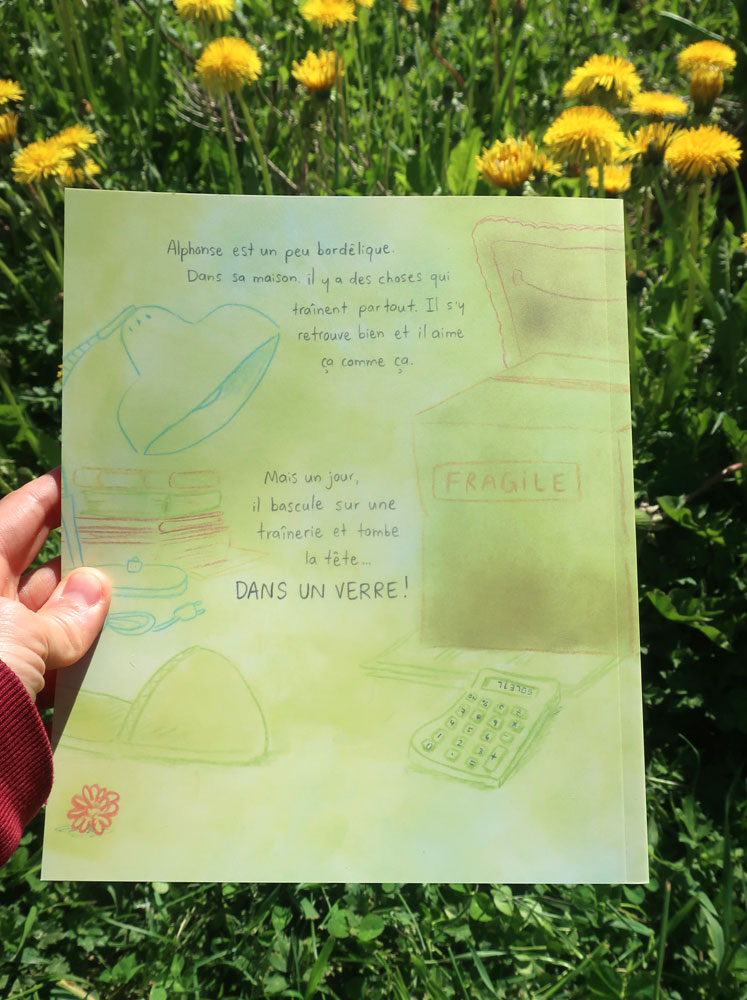 Alphonse est un peu bordélique.
Dans sa maison, il y a des choses qui
traînent partout. Il s'y
retrouve bien et il aime
ça comme ça.
FRAGILE
Mais un jour,
il bascule sur une
traînerie et tombe
la tête...
DANS UN VERRE!